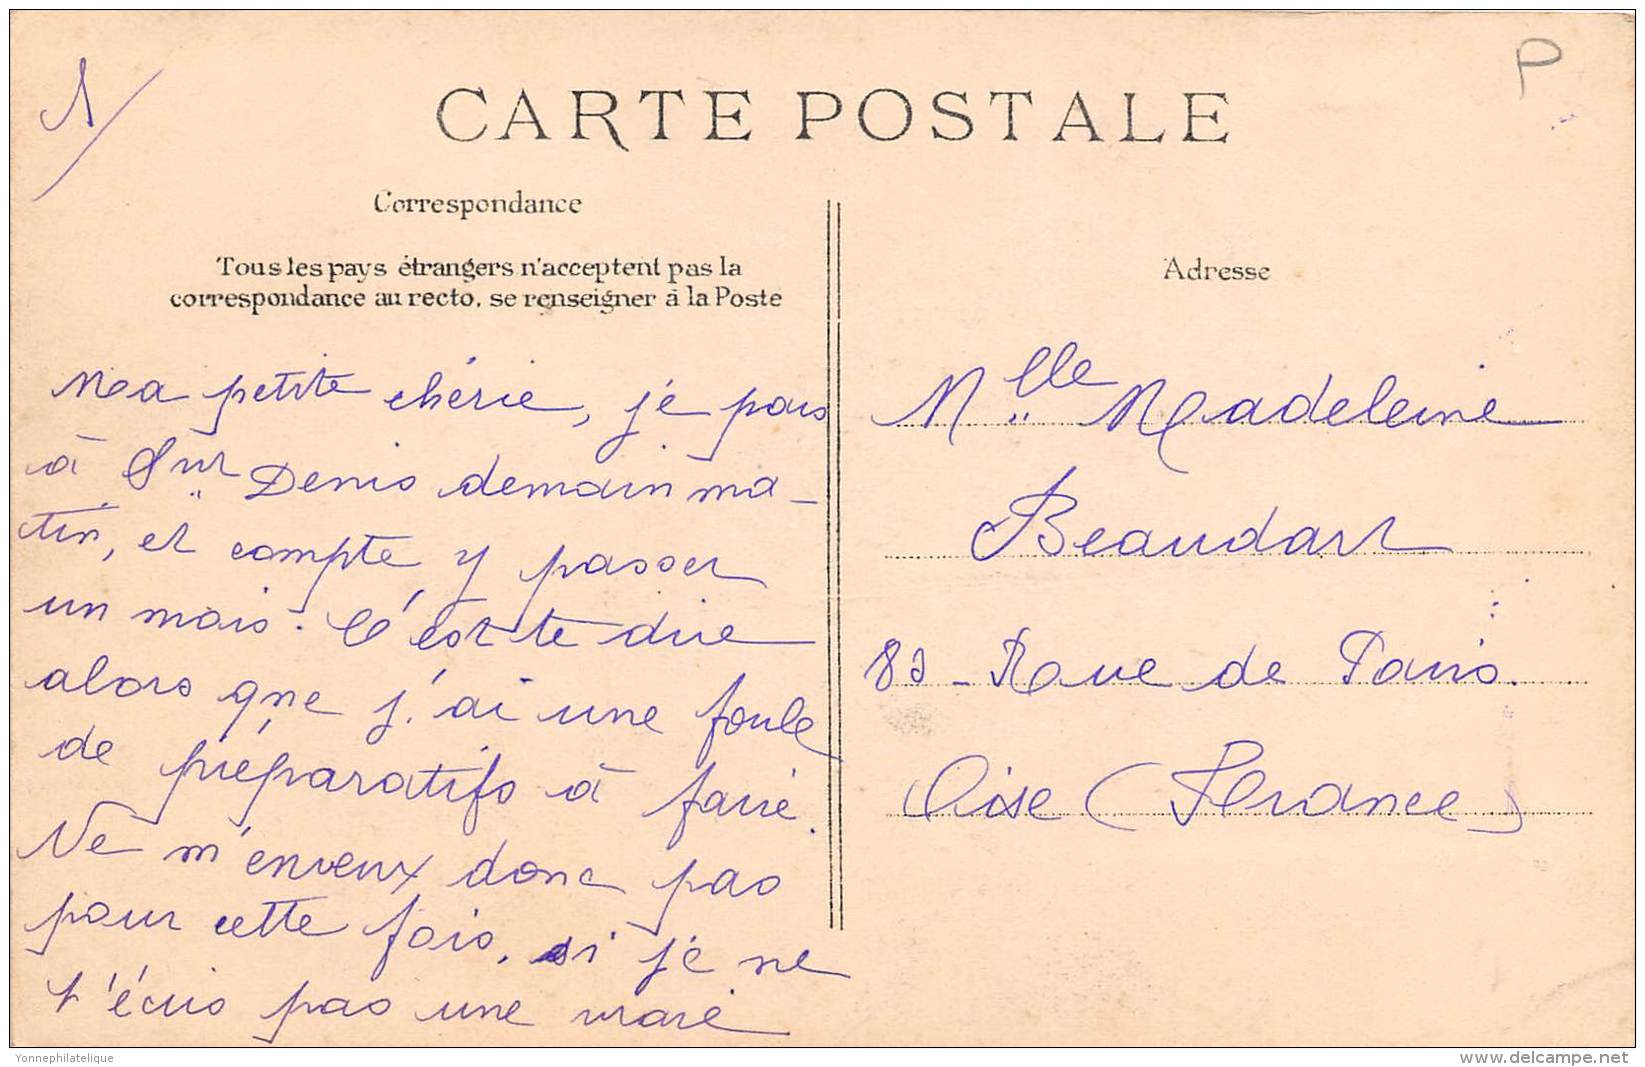 1
P
CARTE POSTALE
Correspondance
Tous les pays étrangers n'acceptent pas la
correspondance au recto, se renseigner à la Poste
Ma petite chérie, je pars
à Denis demain ma-
tin, et compte y passer
un mois. C'est te dire
alors que j'ai une foule
de préparatifs à faire.
Ne m'en veux donc pas
pour cette fois, si je ne
t'écris pas une vraie
Adresse
Mlle Madeleine
Beaudart
83 - Rue de Paris.
Oise (France)
Yonnephilatelique
www.delcampe.net